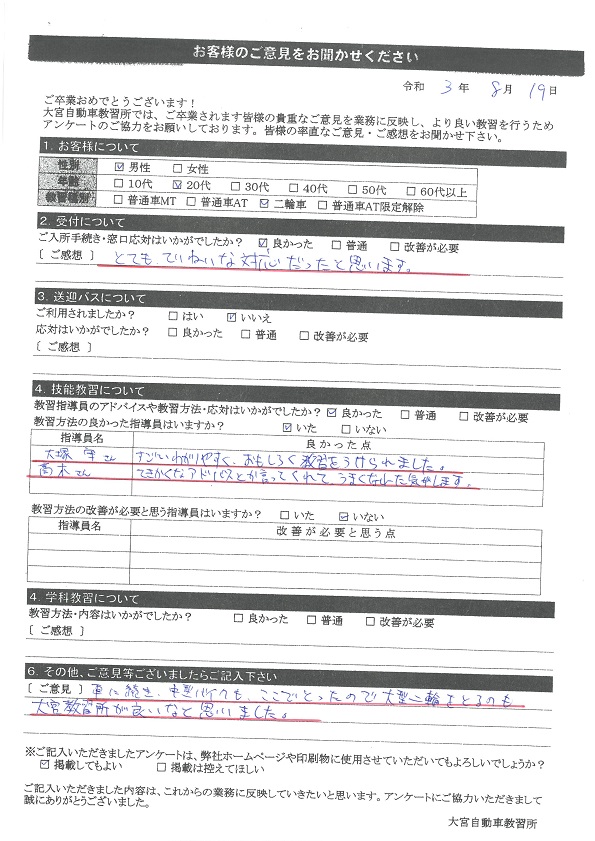 お客様のご意見をお聞かせください
令和 3 年 8 月 19 日
ご卒業おめでとうございます！
大宮自動車教習所では、ご卒業されます皆様の貴重なご意見を業務に反映し、より良い教習を行うため
アンケートのご協力をお願いしております。皆様の率直なご意見・ご感想をお聞かせ下さい。
1. お客様について
性別 ☑ 男性 □ 女性
年齢 □ 10代 ☑ 20代 □ 30代 □ 40代 □ 50代 □ 60代以上
教習種別 □ 普通車MT □ 普通車AT ☑ 二輪車 □ 普通車AT限定解除
2. 受付について
ご入所手続き・窓口応対はいかがでしたか？ ☑ 良かった □ 普通 □ 改善が必要
〔 ご感想 〕 とても ていねいな対応だったと思います。
3. 送迎バスについて
ご利用されましたか？ □ はい ☑ いいえ
応対はいかがでしたか？ □ 良かった □ 普通 □ 改善が必要
〔 ご感想 〕
4. 技能教習について
教習指導員のアドバイスや教習方法・応対はいかがでしたか？ ☑ 良かった □ 普通 □ 改善が必要
教習方法の良かった指導員はいますか？ ☑ いた □ いない
指導員名 良かった点
大塚 守さん すごいわかりやすく、おもしろく教習をうけられました。
高木さん てきかくなアドバイスとか言ってくれて うまくなれた気がします。
教習方法の改善が必要と思う指導員はいますか？ □ いた ☑ いない
指導員名 改善が必要と思う点
4. 学科教習について
教習方法・内容はいかがでしたか？ □ 良かった □ 普通 □ 改善が必要
〔 ご感想 〕
6. その他、ご意見等ございましたらご記入下さい
〔 ご意見 〕 車に続き、中型バイクも、ここでとったので 大型二輪をとるのも
大宮教習所が良いなと思いました。
※ご記入いただきましたアンケートは、弊社ホームページや印刷物に使用させていただいてもよろしいでしょうか？
☑ 掲載してもよい □ 掲載は控えてほしい
ご記入いただきました内容は、これからの業務に反映していきたいと思います。アンケートにご協力いただきまして
誠にありがとうございました。
大宮自動車教習所